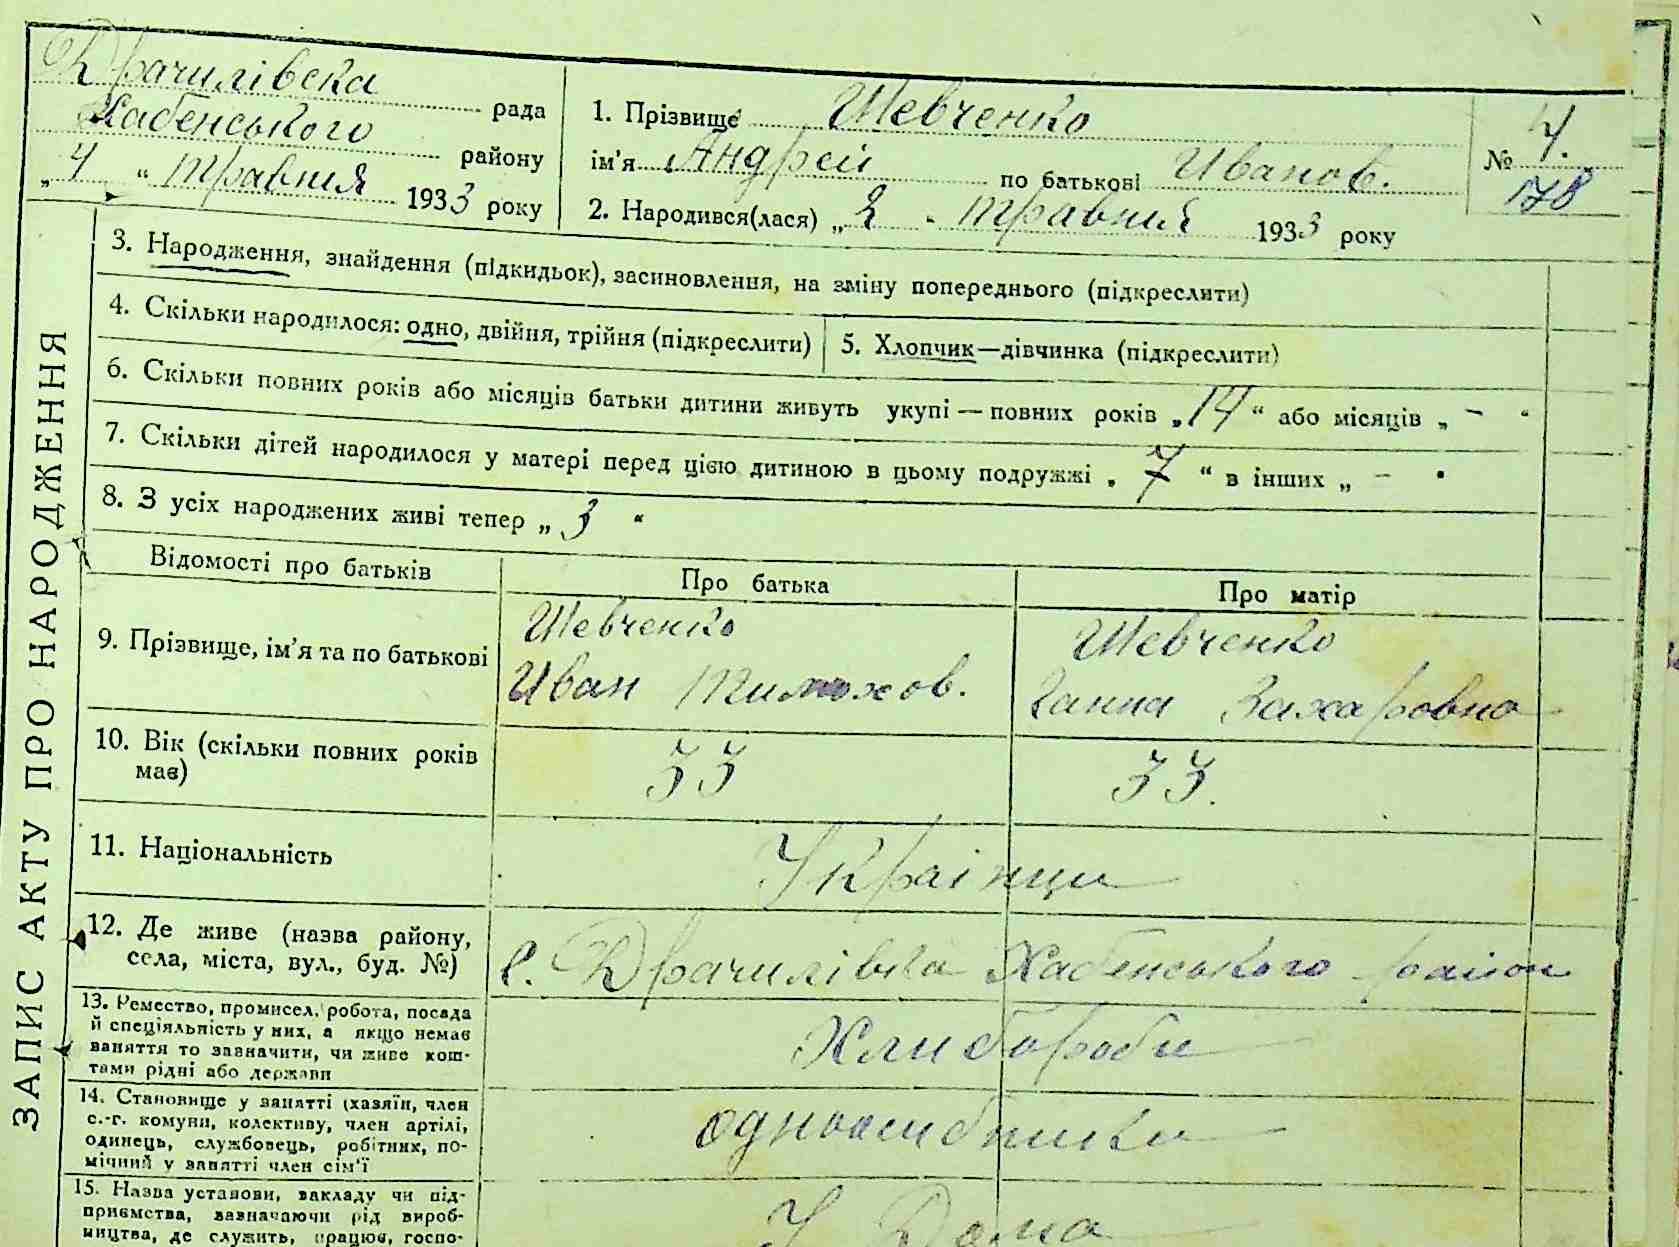 Драчилівска рада
Хабенського району
„4“ травня 1933 року
1. Прізвище Шевченко
ім'я Андрей по батькові Иванов.
2. Народився(лася) „2 травня 1933 року
№ 4.
178
3. Народження, знайдення (підкидьок), засиновлення, на зміну попереднього (підкреслити)
4. Скільки народилося: одно, двійня, трійня (підкреслити)
5. Хлопчик—дівчинка (підкреслити)
6. Скільки повних років або місяців батьки дитини живуть укупі — повних років „14“ або місяців „ –
7. Скільки дітей народилося у матері перед цією дитиною в цьому подружжі „7“ в інших „ –
8. З усіх народжених живі тепер „3“
ЗАПИС АКТУ ПРО НАРОДЖЕННЯ
Відомості про батьків
Про батька
Про матір
9. Прізвище, ім'я та по батькові
Шевченко
Иван Тимохов.
Шевченко
Ганна Захаровна
10. Вік (скільки повних років
має)
33
33.
11. Національність
Українци
12. Де живе (назва району,
села, міста, вул., буд. №)
с. Драчилівка Хабенського район
13. Ремество, промисел, робота, посада
й спеціяльність у них, а якщо немає
заняття то зазначити, чи живе кош-
тами рідні або держави
Хлибороби
14. Становище у занятті (хазяїн, член
с.-г. комуни, колективу, член артілі,
одинець, службовець, робітник, по-
мічний у занятті член сім'ї
одноосибники
15. Назва установи, закладу чи під-
приємства, зазначаючи рід вироб-
ництва, де служить, працює, госпо-
У Дома